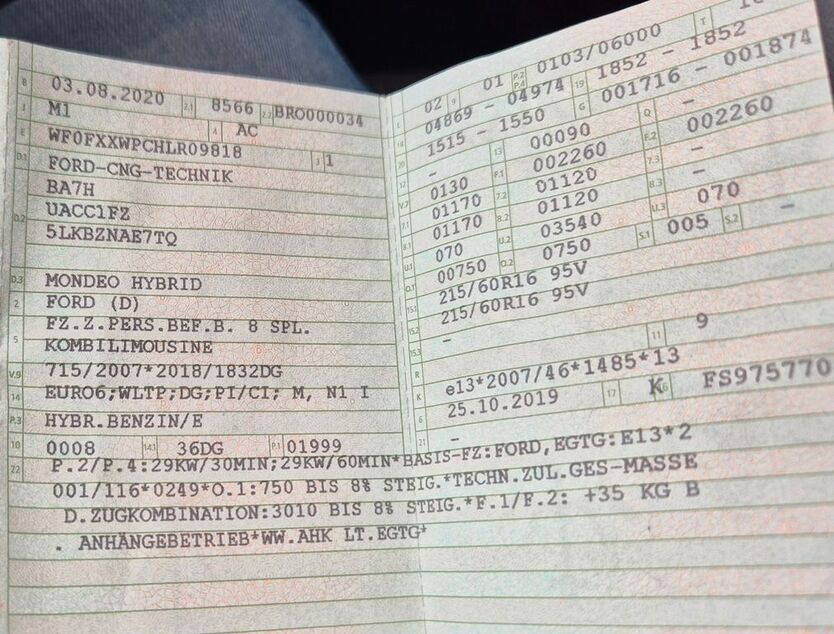 B 03.08.2020 2.1 8566 2.2 BRO000034
J M1 4 AC
E WF0FXXWPCHLR09818 3 1
D.1 FORD-CNG-TECHNIK
BA7H
D.2 UACC1FZ
5LKBZNAE7TQ
D.3 MONDEO HYBRID
2 FORD (D)
5 FZ.Z.PERS.BEF.B. 8 SPL.
KOMBILIMOUSINE
V.9 715/2007*2018/1832DG
14 EURO6;WLTP;DG;PI/CI; M, N1 I
P.3 HYBR.BENZIN/E
10 0008 14.1 36DG P.1 01999
L 02 9 01 P.2 P.4 0103/06000 T
18 04869 - 04974 19 1852 - 1852
20 1515 - 1550 G 001716 - 001874
12 - 13 00090 Q -
V.7 0130 F.1 002260 F.2 002260
7.1 01170 7.2 01120 7.3 -
8.1 01170 8.2 01120 8.3 -
U.1 070 U.2 03540 U.3 070
O.1 00750 O.2 0750 S.1 005 S.2 -
15.1 215/60R16 95V
15.2 215/60R16 95V
15.3 -
R 11 9
K e13*2007/46*1485*13
6 25.10.2019 17 K 16 FS975770
21 -
22 P.2/P.4:29KW/30MIN;29KW/60MIN*BASIS-FZ:FORD,EGTG:E13*2
001/116*0249*O.1:750 BIS 8% STEIG.*TECHN.ZUL.GES-MASSE
D.ZUGKOMBINATION:3010 BIS 8% STEIG.*F.1/F.2: +35 KG B
. ANHÄNGEBETRIEB*WW.AHK LT.EGTG*